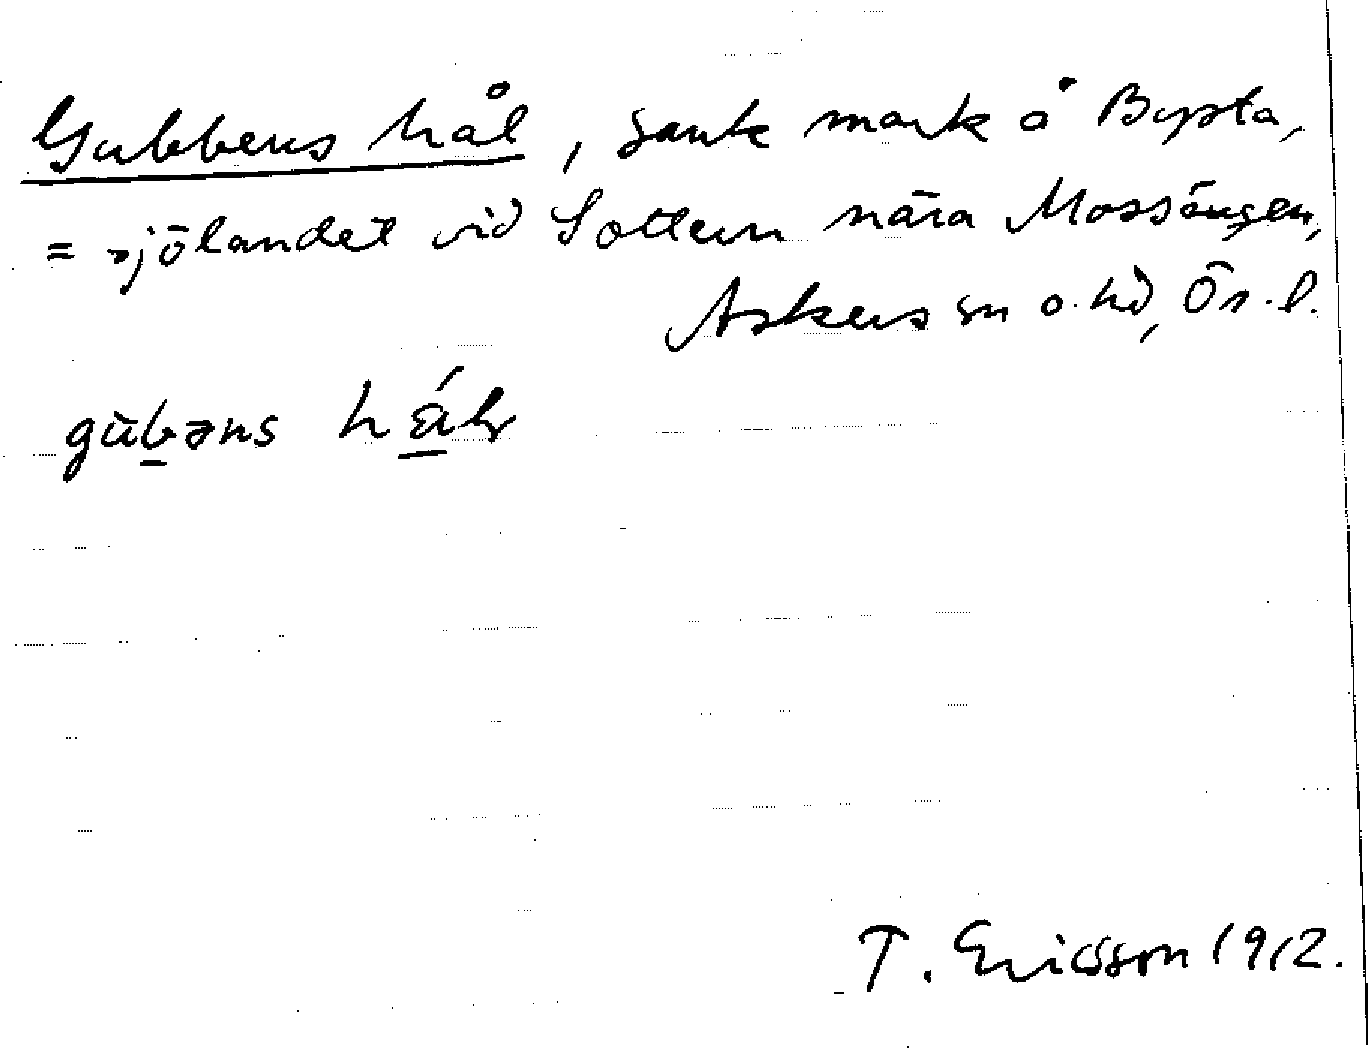 Gubbens hål, sank mark å Bysta,
= sjölandet vid Sottern nära Mossängen,
Askers sn o. hd, Ör. l.
gùbəns
T. Ericsson 1912.